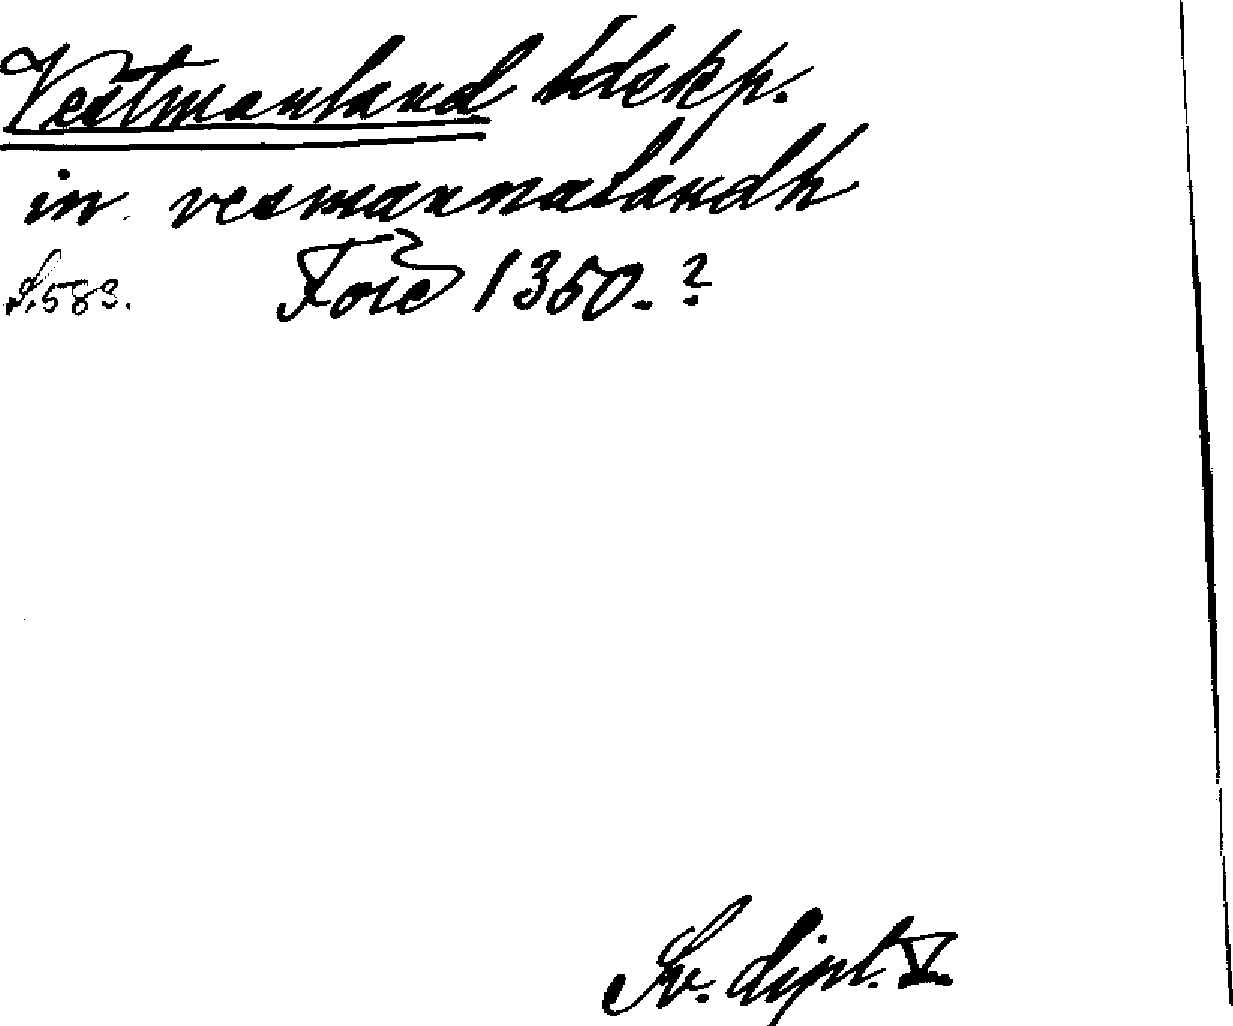 Vestmanland ldskp.
in vesmannalandh
S. 583. Före 1350.?
Sv. dipl. V.